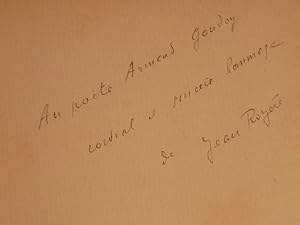 Au poète Armand Godoy
cordial et sincère hommage
de Jean Royère